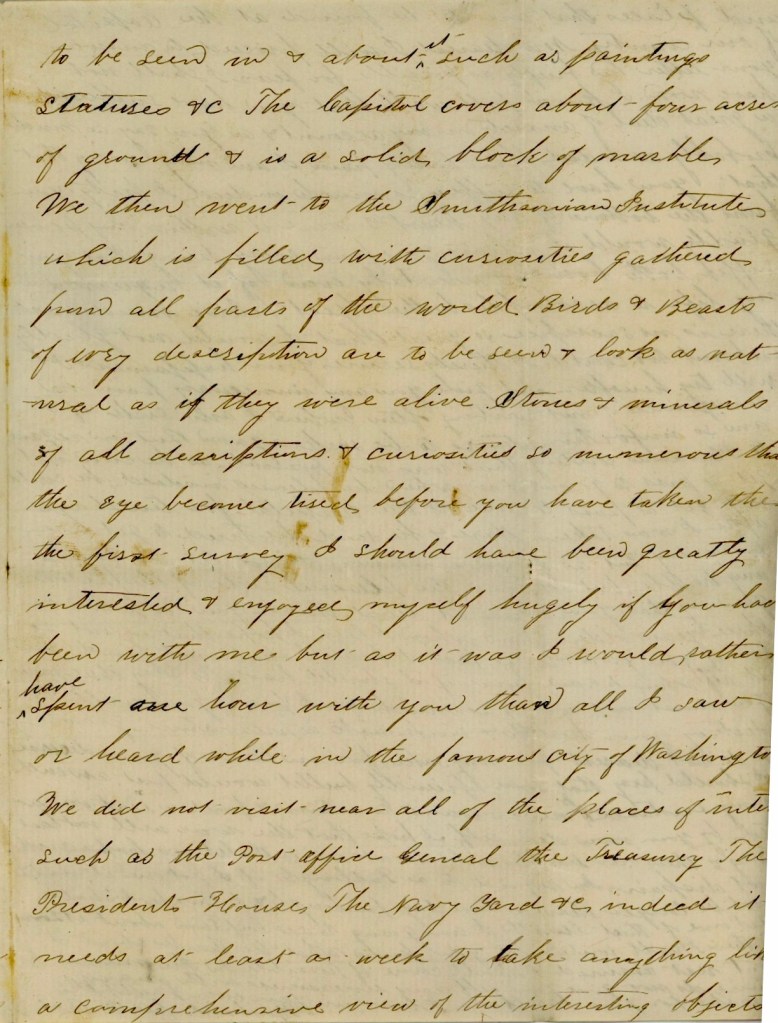 to be seen in & about ^it such as paintings
statuses &c The Capitol covers about four acres
of ground & is a solid block of marble
We then went to the Smithsonian Institute
which is filled with curiosities gathered
from all parts of the world Birds & Beasts
of evry description are to be seen & look as nat-
-ural as if they were alive Stones & minerals
of all desriptions & curiosities so numerous tha
the eye becomes tired before you have taken the
the first survey I should have been greatly
interested & enjoyed myself hugely if you had
been with me but as it was I would rather
^have spent one hour with you than all I saw
or heard while in the famous city of Washingto
We did not visit near all of the places of inte
such as the Post office Geneal the Treasurey The
Presidents Houses The Navy Yard &c indeed it
needs at least a week to take anything lik
a comprehensive view of the interesting objects